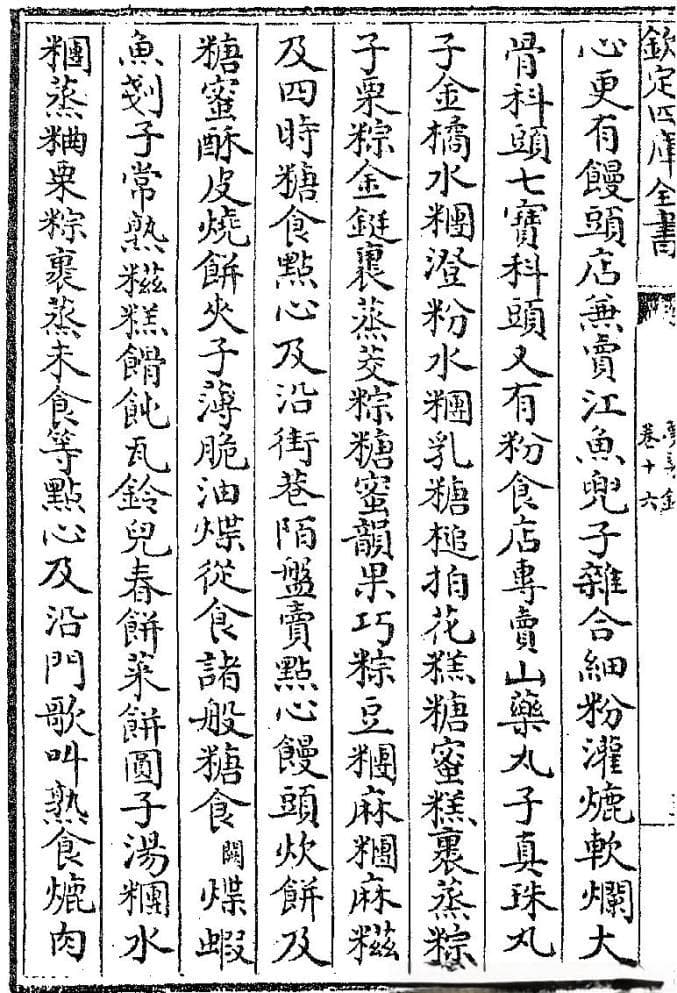 欽定四庫全書
卷十六
心更有饅頭店兼賣江魚兜子雜合細粉灌熝軟爛大
骨科頭七寳科頭又有粉食店專賣山藥丸子真珠丸
子金橘水糰澄粉水糰乳糖槌拍花糕糖蜜糕裹蒸粽
子栗粽金鋌裹蒸茭粽糖蜜韻果巧粽豆糰麻糰麻糍
及四時糖食點心及沿街巷陌盤賣點心饅頭炊餅及
糖蜜酥皮燒餅夾子薄脆油煠從食諸般糖食闕煠蝦
魚剗子常熟糍糕餶飿瓦鈴兒春餅菜餅圓子湯糰水
糰蒸粬栗粽裹蒸未食等點心及沿門歌叫熟食熝肉